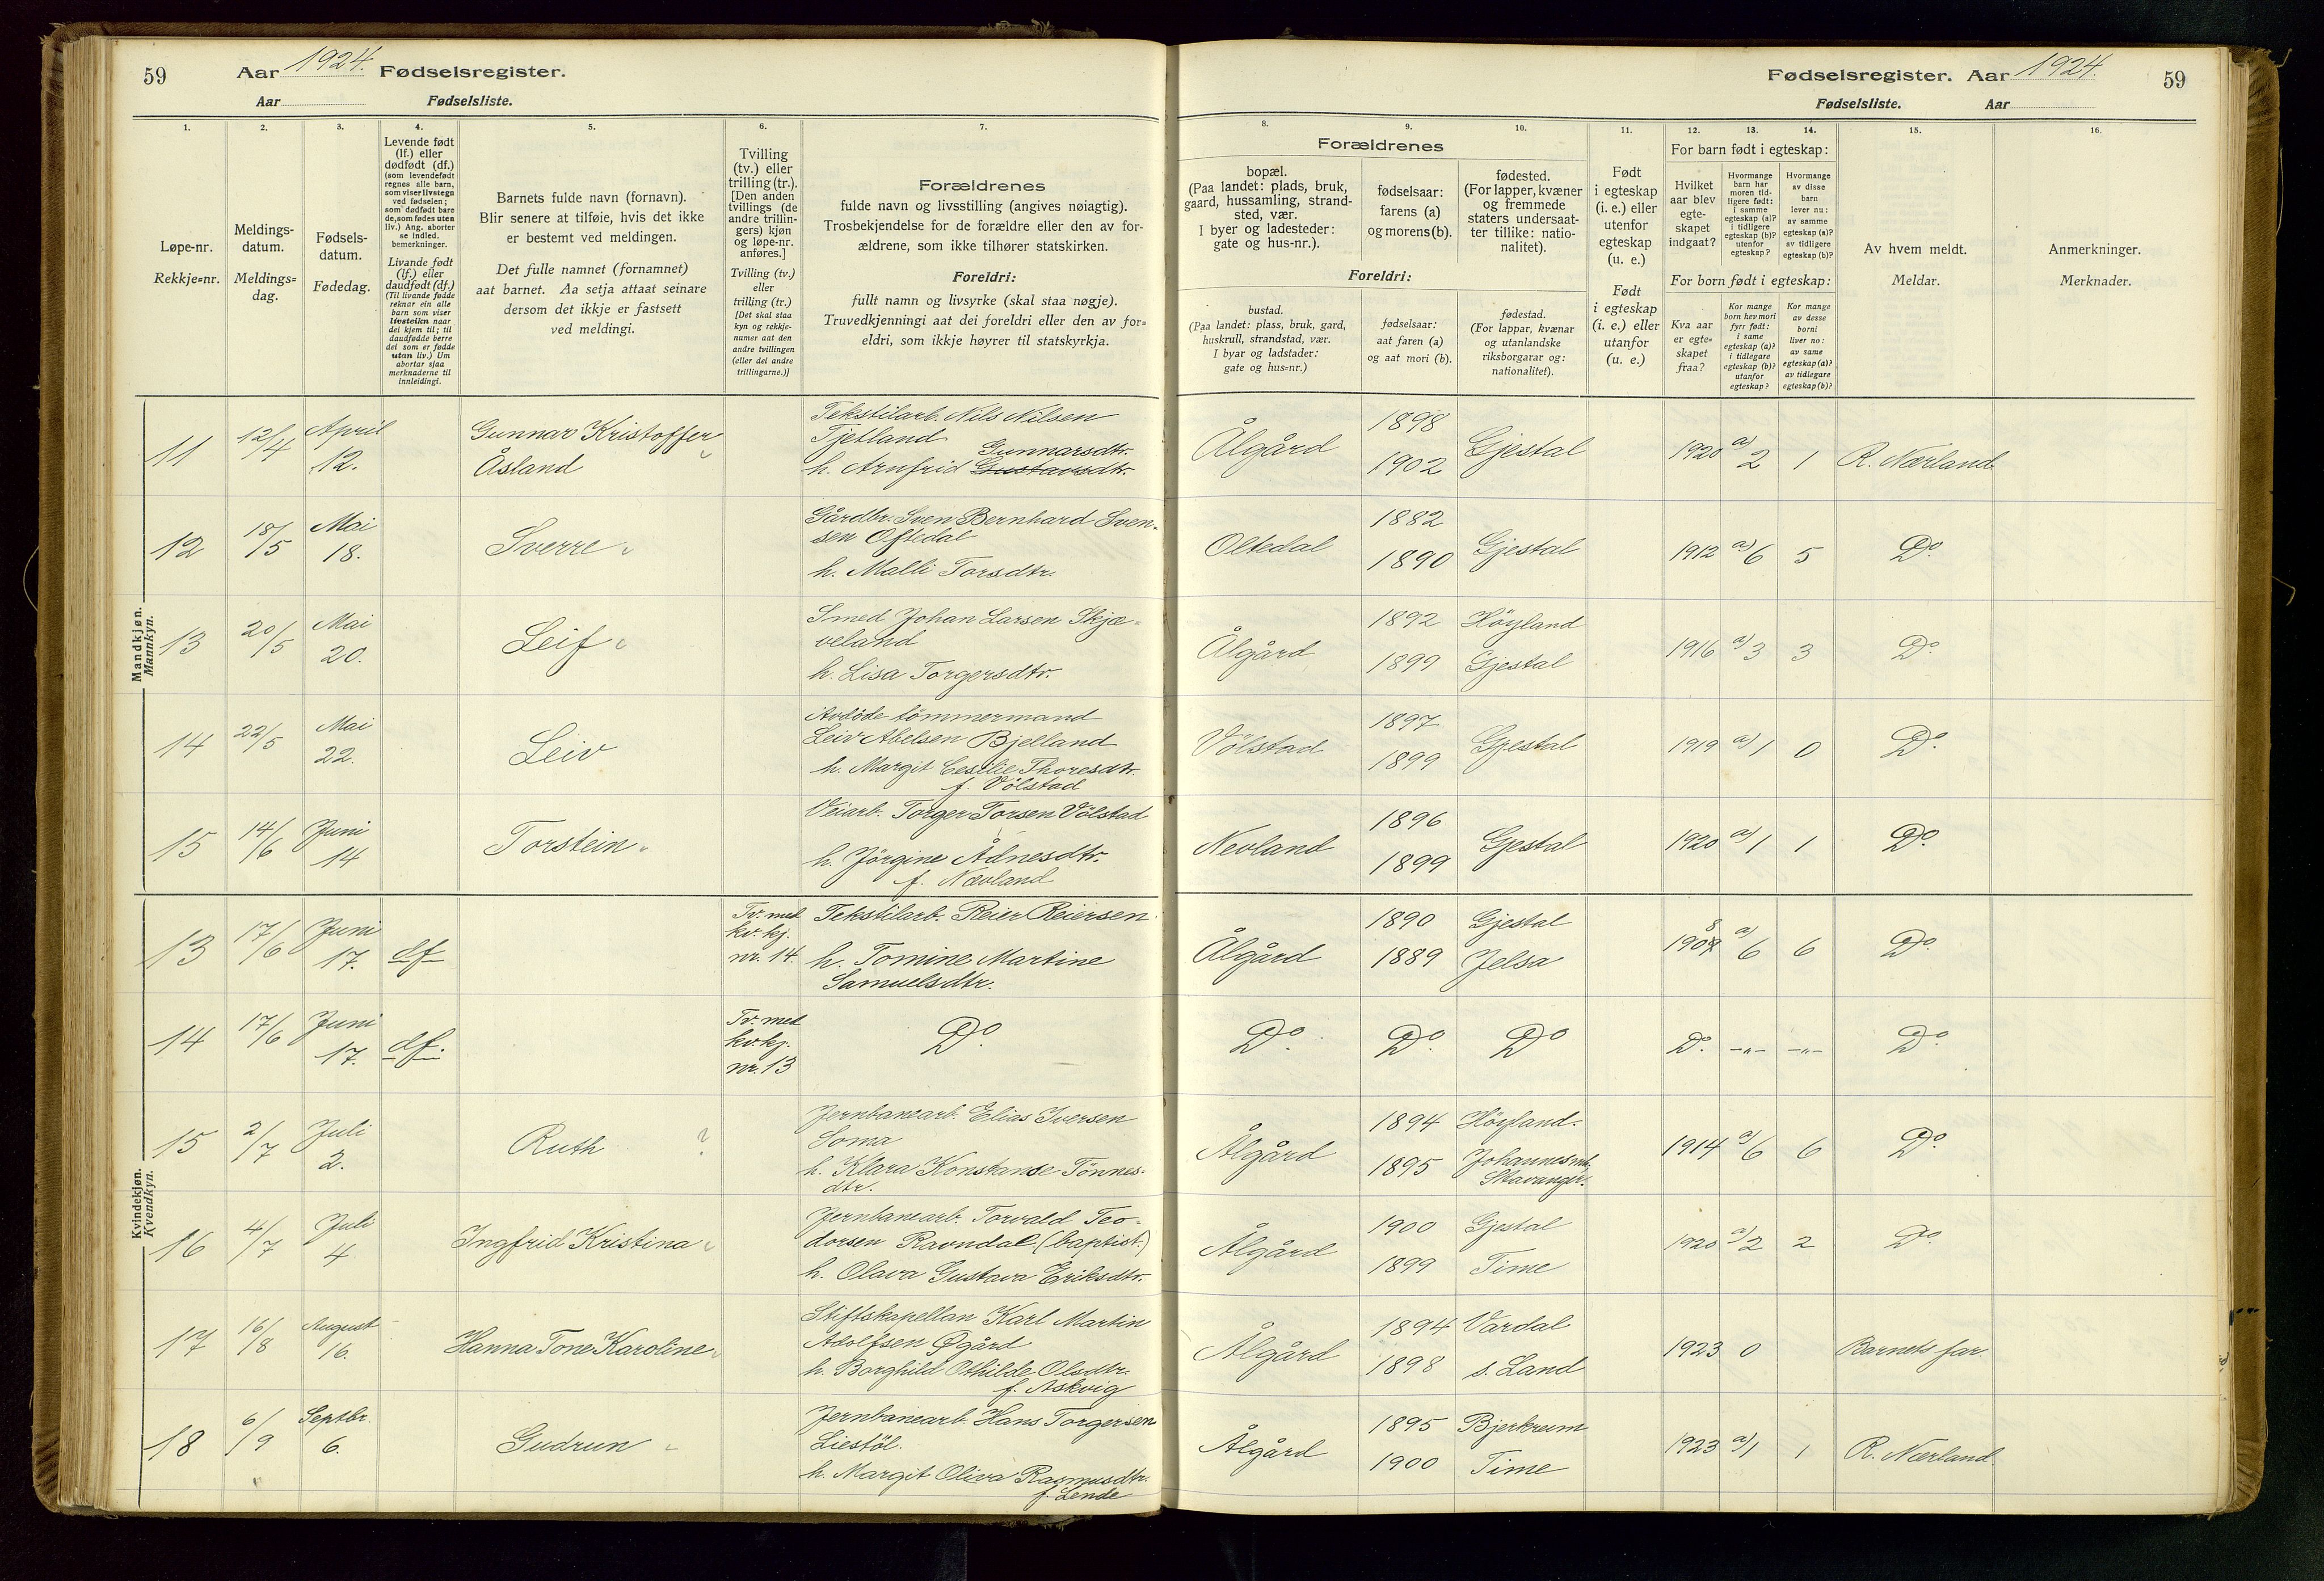 59
Aar 1924. Fødselsregister.
Aar Fødselsliste.
Fødselsregister. Aar 1924.
59
Fødselsliste. Aar
1.
Løpe-nr.
Rekkje=nr.
2.
Meldings-
datum.
Meldings=
dag.
3.
Fødsels-
datum.
Fødedag.
4.
Levende født
(lf.) eller
dødfødt (df.)
(som levendefødt
regnes alle barn,
som viser livstegn
ved fødselen;
som dødfødt bare
de, som fødes uten
liv.) Ang. aborter
se indled.
bemerkninger.
Livande født
(lf.) eller
daudfødt (df.)
(Til livande fødde
reknar ein alle
barn som viser
livsteikn naar
dei kjem til; til
daudfødde berre
dei som er fødde
utan liv.) Um
abortar sjaa
merknaderne til
innleidingi.
5.
Barnets fulde navn (fornavn).
Blir senere at tilføie, hvis det ikke
er bestemt ved meldingen.
Det fulle namnet (fornamnet)
aat barnet. Aa setja attaat seinare
dersom det ikkje er fastsett
ved meldingi.
6.
Tvilling
(tv.) eller
trilling (tr.).
[Den anden
tvillings (de
andre trillin-
gers) kjøn
og løpe-nr.
anføres.]
Tvilling (tv.)
eller
trilling (tr.)
[Det skal staa
kyn og rekkje-
numer aat den
andre tvillingen
(eller dei andre
trillingarne.)]
7.
Forældrenes
fulde navn og livsstilling (angives nøiagtig).
Trosbekjendelse for de forældre eller den av for-
ældrene, som ikke tilhører statskirken.
Foreldri:
fullt namn og livsyrke (skal staa nøgje).
Truvedkjenningi aat dei foreldri eller den av for=
eldri, som ikkje høyrer til statskyrkja.
Forældrenes
8.
bopæl.
(Paa landet: plads, bruk,
gaard, hussamling, strand-
sted, vær.
I byer og ladesteder:
gate og hus-nr.).
9.
fødselsaar:
farens (a)
og morens (b).
10.
fødested.
(For lapper, kvæner
og fremmede
staters undersaat-
ter tillike: natio-
nalitet).
Foreldri:
bustad.
(Paa landet: plass, bruk, gard,
huskrull, strandstad, vær.
I byar og ladstader:
gate og hus=nr.)
fødselsaar:
aat faren (a)
og aat mori (b).
fødestad.
(For lappar, kvænar
og utanlandske
riksborgarar og:
nationalitet).
11.
Født
i egteskap
(i. e.) eller
utenfor
egteskap
(u. e.)
Født
i egteskap
(i. e.) eller
utanfor
(u. e.)
12. 13. 14.
For barn født i egteskap:
Hvilket
aar blev
egte-
skapet
indgaat?
Hvormange
barn har
moren tid-
ligere født:
i samme
egteskap (a)?
i tidligere
egteskap (b)?
utenfor
egteskap?
Hvormange
av disse
barn
lever nu:
av samme
egteskap (a)?
av tidligere
egteskap (b)?
For born født i egteskap:
Kva aar
er egte=
skapet
fraa?
Kor mange
born hev mori
fyrr født:
i same
egteskap (a)?
i tidlegare
egteskap (b)?
utanfor
egteskap?
Kor mange
av desse
borni
liver no:
av same
egteskap (a)?
av tidlegare
egteskap (b)?
15.
Av hvem meldt.
Meldar.
16.
Anmerkninger.
Merknader.
Mandkjøn.
Mannkyn.
11 12/4 April 12. Gunnar Kristoffer Åsland
Tekstilarb. Nils Nilsen
Tjetland
Gunnarsdtr.
h. Arnfrid Gustavsdtr.
Ålgård 1898 1902 Gjestal 1920 a) 2 1 R. Nærland
12 18/5 Mai 18. Sverre
Gårdbr. Sven Bernhard Sven-
sen Oftedal
h. Malli Torsdtr.
Oltedal 1882 1890 Gjestal 1912 a) 6 5 Do.
13 20/5 Mai 20. Leif
Smed Johan Larsen Skjæ-
veland
h. Lisa Torgersdtr.
Ålgård 1892 Höyland 1899 Gjestal 1916 a) 3 3 Do.
14 22/5 Mai 22. Leiv
Avdöde tömmermand
Leiv Abelsen Bjelland
h. Margit Cesilie Thoresdtr.
f. Völstad
Völstad 1897 1899 Gjestal 1919 a) 1 0 Do.
15 14/6 Juni 14 Torstein
Veiarb. Torger Torsen Völstad
h. Jörgine Ådnesdtr.
f. Nævland
Nevland 1896 1899 Gjestal 1920 a) 1 1 Do.
Kvindekjøn.
Kvendkyn.
13 17/6 Juni 17. df Tv. med kv. kj. nr. 14.
Tekstilarb. Reier Reiersen
h. Tomine Martine
Samuelsdtr.
Ålgård 1890 Gjestal 1889 Jelsa 1908 a) 6 6 Do.
14 17/6 Juni 17. df. Tv. med kv. kj. nr. 13
Do. Do. Do. Do Do. -"- -"- Do.
15 2/7 Juli 2. Ruth ?
Jernbanearb. Elias Iversen
Soma
h. Klara Konstanse Tönnes-
dtr.
Ålgård 1894 Höyland. 1895 Johannesm. Stavanger. 1914 a) 6 6 Do.
16 4/7 Juli 4 Ingfrid Kristina
Jernbanearb. Torvald Teo-
dorsen Ravndal (baptist.)
h. Olava Gustava Eriksdtr.
Ålgård 1900 Gjestal 1899 Time 1920 a) 2 2 Do.
17 16/8 August 16. Hanna Tone Karoline
Stiftskapellan Karl Martin
Adolfsen Øgård
h. Borghild Othilde Olsdtr.
f. Askvig
Ålgård 1894 Vardal 1898 s. Land 1923 0 Barnets far.
18 6/9 Septbr. 6. Gudrun
Jernbanearb. Hans Torgersen
Liestöl.
h. Margit Oliva Rasmusdtr.
f. Lende
Ålgård 1895 Bjerkreim 1900 Time 1923 a) 1 1 R. Nærland.